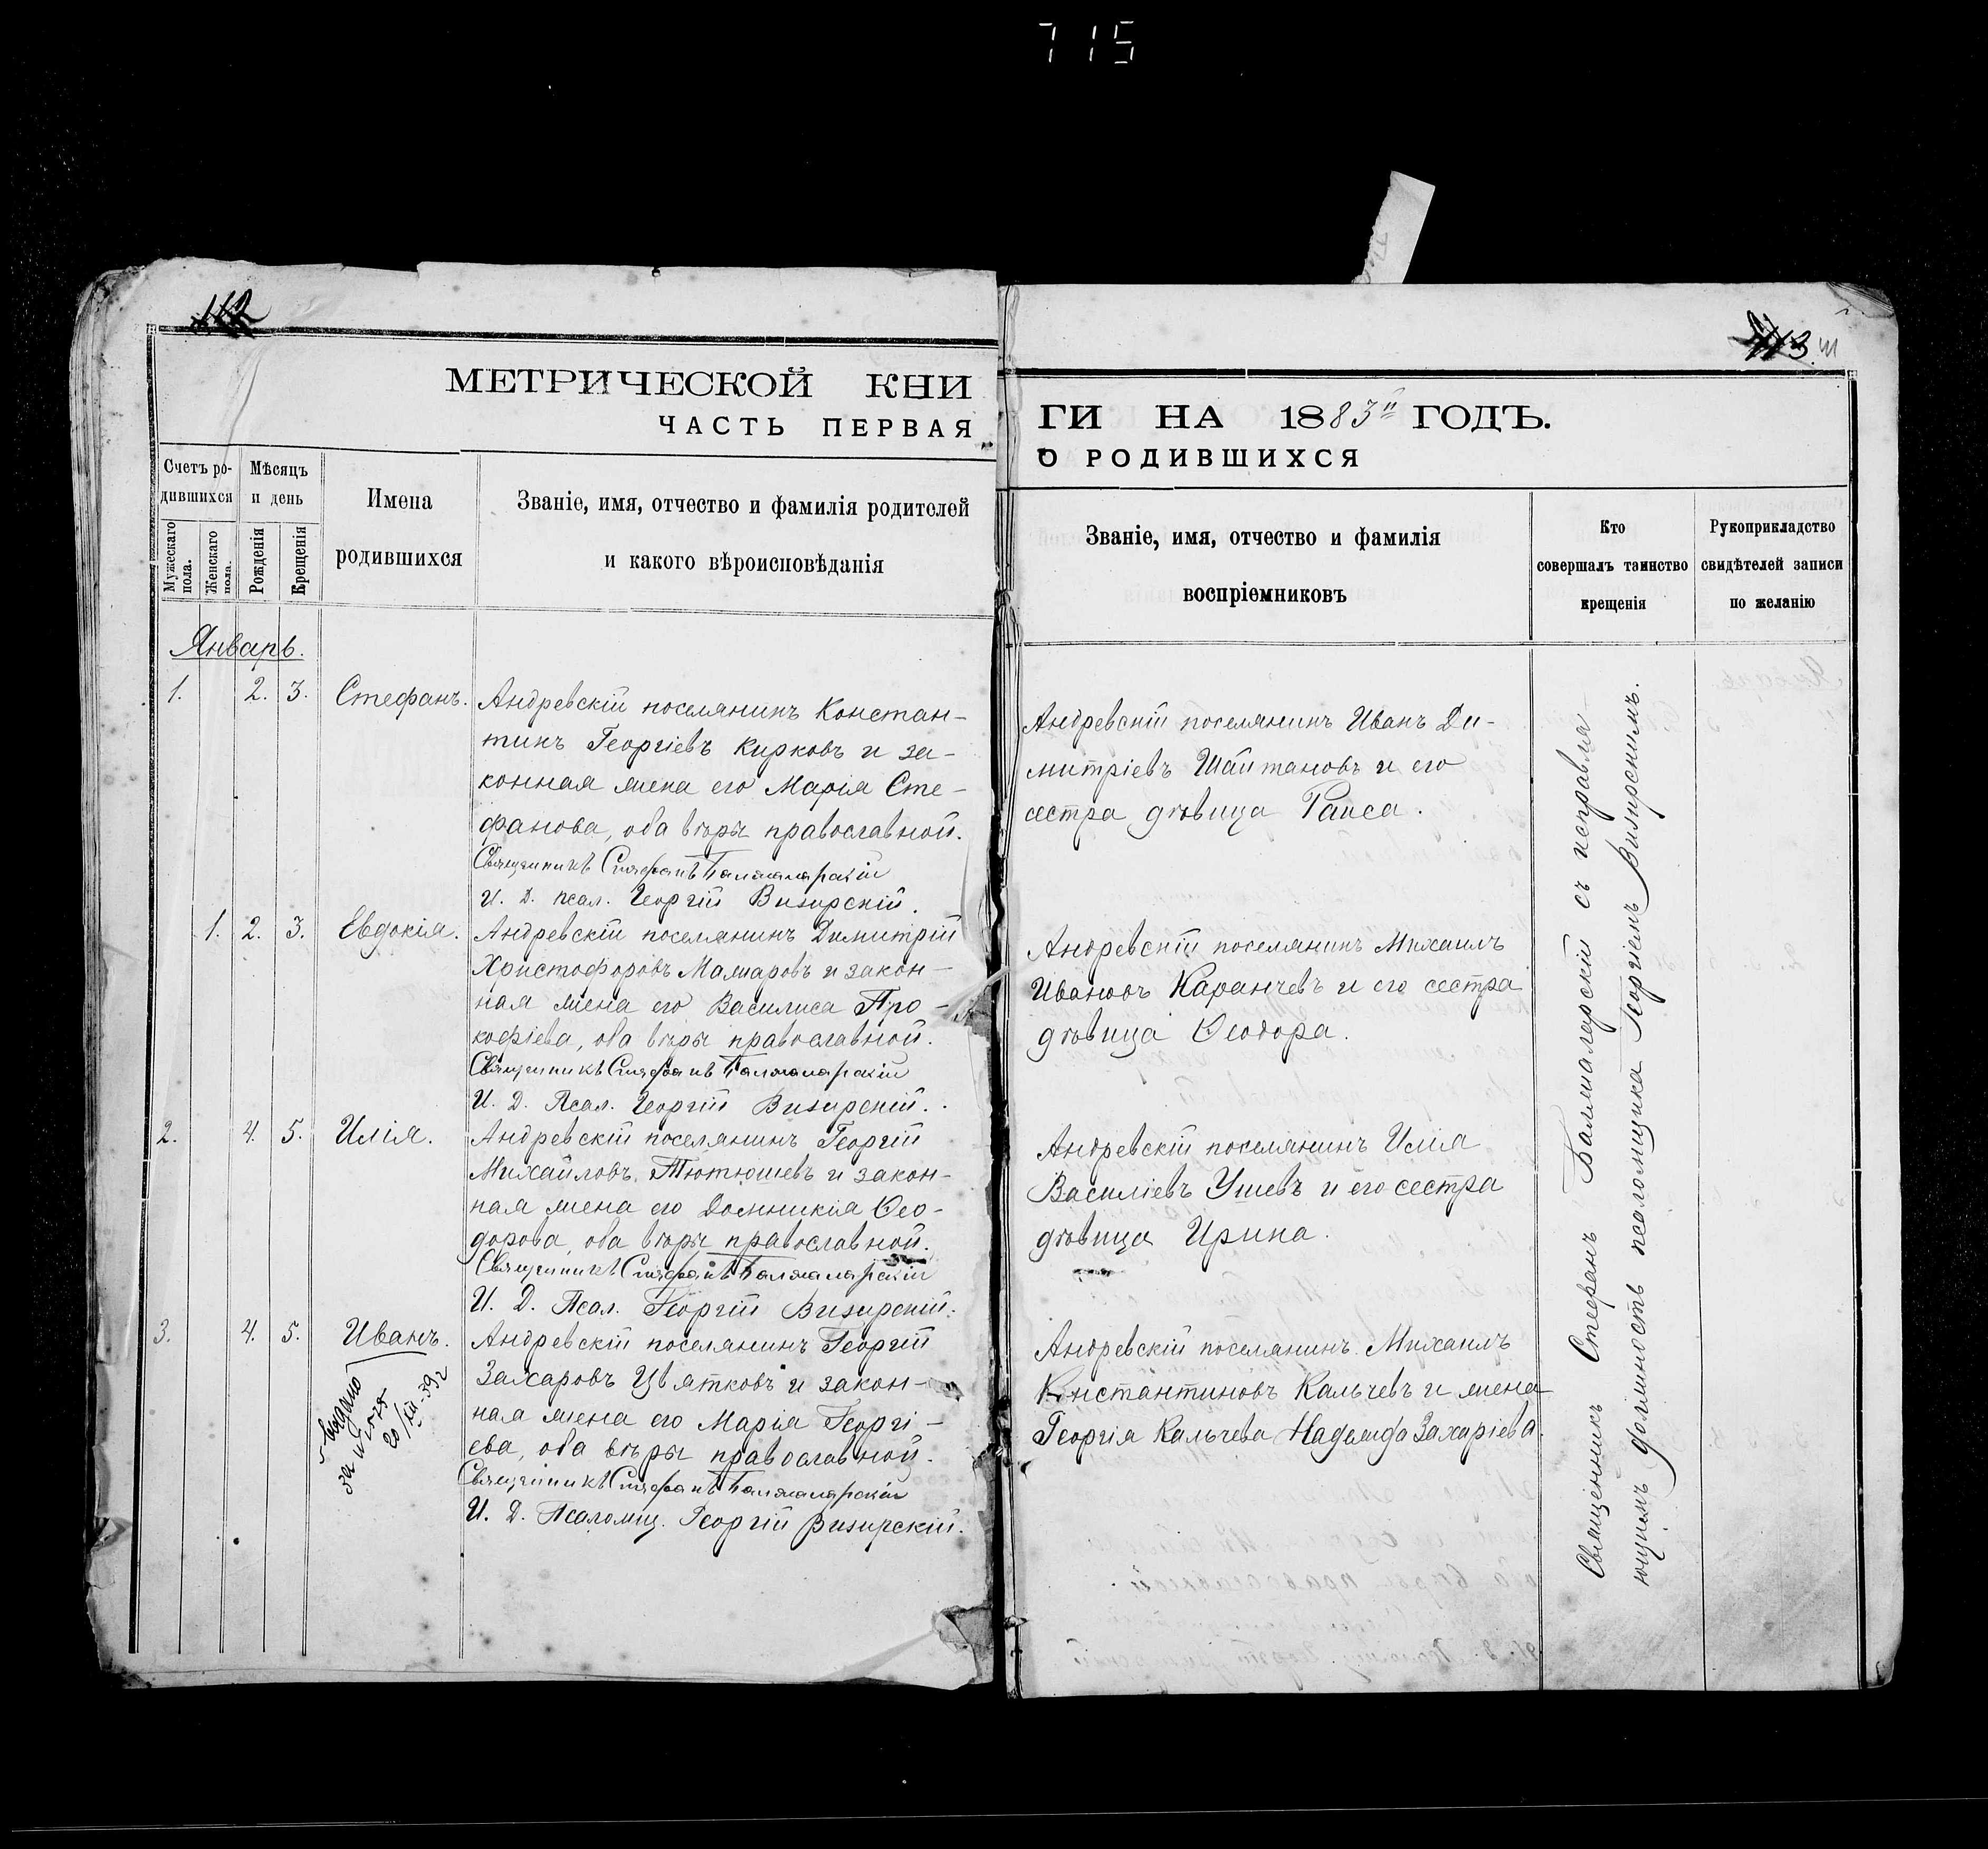 715
112
МЕТРИЧЕСКОЙ КНИ
ЧАСТЬ ПЕРВАЯ
Счетъ ро-
дившихся
Мужескаго пола.
Женскаго пола.
Мѣсяцъ
и день
Рожденія
Крещенія
Имена
родившихся
Званіе, имя, отчество и фамилія родителей
и какого вѣроисповѣданія
Январь.
1. 2. 3. Стефанъ.
Андревскій поселянинъ Констан-
тинъ Георгіевъ Кирковъ и за-
конная жена его Марія Сте-
фанова, оба вѣры православной.
Священникъ Стефанъ Балжаларскій
И. Д. псал. Георгій Визирскій.
1. 2. 3. Евдокія.
Андревскій поселянинъ Димитрій
Христофоровъ Мамаровъ и закон-
ная жена его Василиса Про-
кофіева, оба вѣры православной.
Священникъ Стефанъ Балжаларскій
И. Д. Псал. Георгій Визирскій.
2. 4. 5. Илія.
Андревскій поселянинъ Георгій
Михайловъ Тютюшевъ и закон-
ная жена его Домникія Ѳео-
дорова, оба вѣры православной.
Священникъ Стефанъ Балжаларскій
И. Д. Псал. Георгій Визирскій.
3. 4. 5. Иванъ.
Андревскій поселянинъ Георгій
Захаровъ Цвятковъ и закон-
ная жена его Марія Георгі-
ева, оба вѣры православной.
Священникъ Стефанъ Балжаларскій
И. Д. Псаломщ. Георгій Визирскій.
Выдано
за № 2525
20/XII-392
113
ГИ НА 1883й ГОДЪ.
О РОДИВШИХСЯ
Званіе, имя, отчество и фамилія
воспріемниковъ
Кто
совершалъ таинство
крещенія
Рукоприкладство
свидѣтелей записи
по желанію
Андревскій поселянинъ Иванъ Ди-
митріевъ Шайтановъ и его
сестра дѣвица Раиса.
Андревскій поселянинъ Михаилъ
Ивановъ Каранчевъ и его сестра
дѣвица Ѳеодора.
Андревскій поселянинъ Илія
Василіевъ Ушевъ и его сестра
дѣвица Ирина.
Андревскій поселянинъ Михаилъ
Константиновъ Кальчевъ и жена
Георгія Кальчева Надежда Захаріева.
Священникъ Стефанъ Балжаларскій съ исправля-
ющимъ должность псаломщика Георгіемъ Визирскимъ.